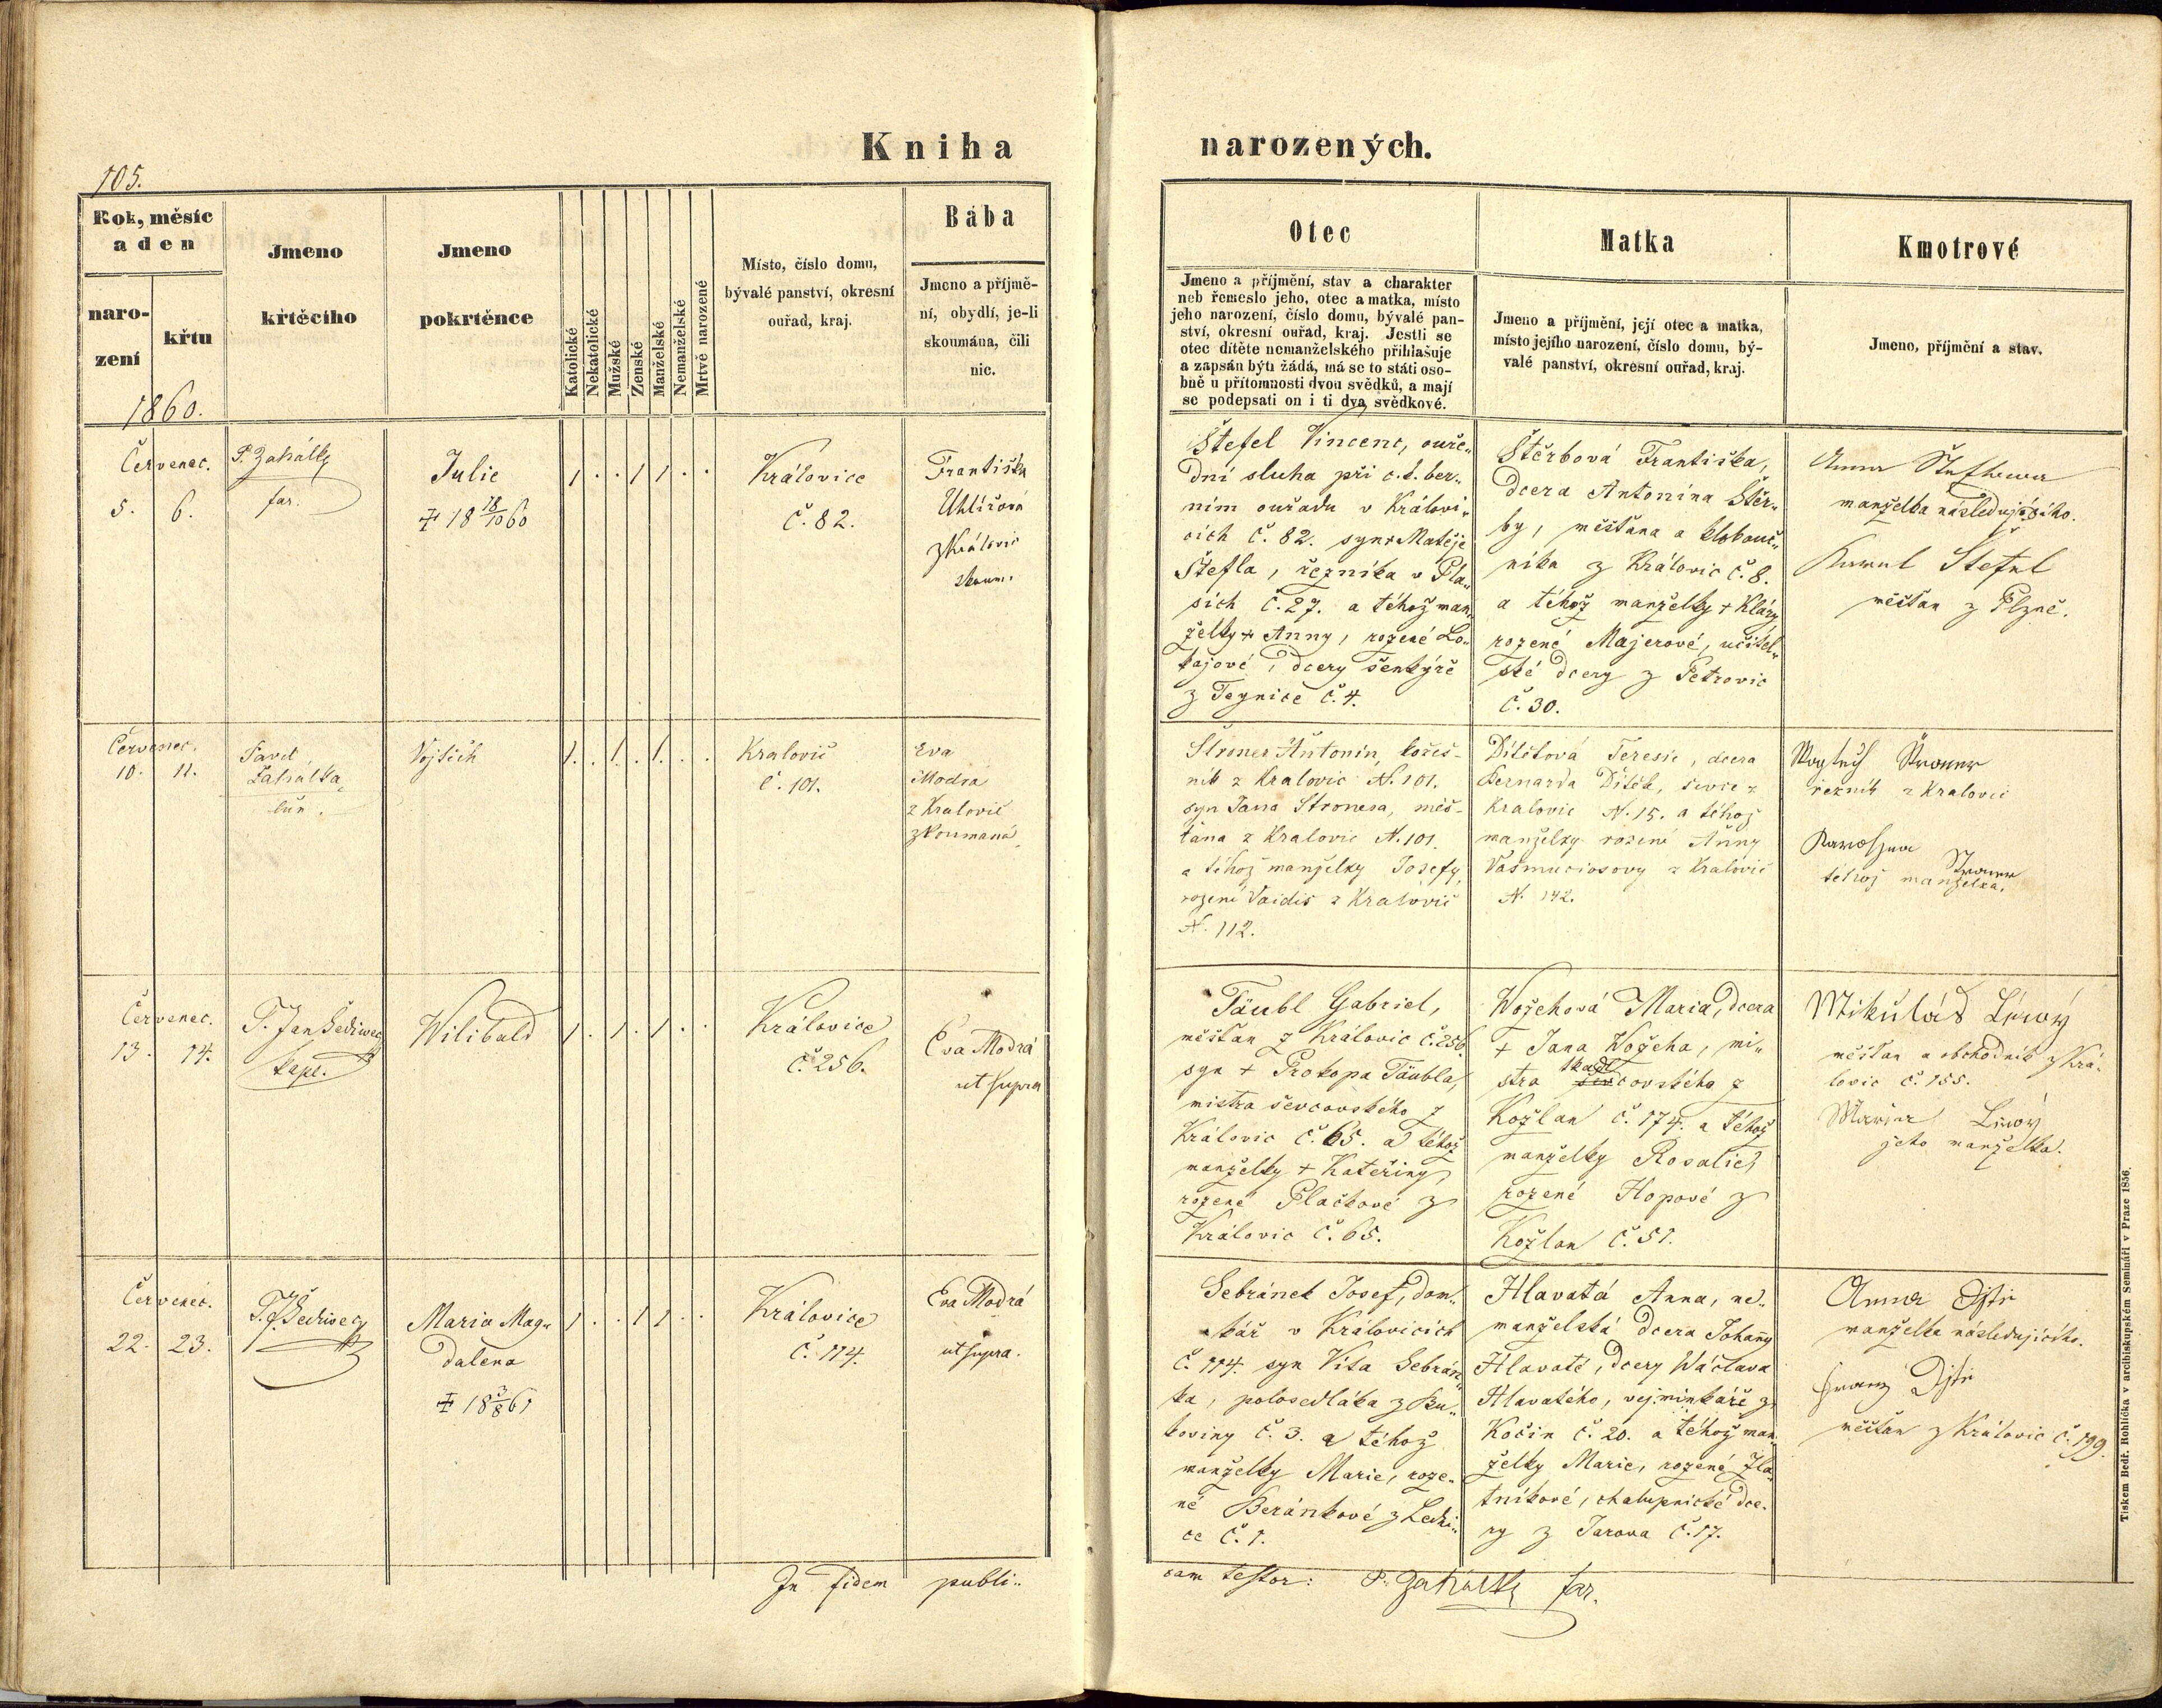 Kniha narozených.
105.
Rok, měsíc
a den
naro-
zení
křtu
Jmeno
křtěcího
Jmeno
pokrtěnce
Katolické
Nekatolické
Mužské
Ženské
Manželské
Nemanželské
Mrtvě narozené
Místo, číslo domu,
bývalé panství, okresní
ouřad, kraj.
Bába
Jmeno a příjmě-
ní, obydlí, je-li
skoumána, čili
nic.
Otec
Jmeno a příjmění, stav a charakter
neb řemeslo jeho, otec a matka, místo
jeho narození, číslo domu, bývalé pan-
ství, okresní ouřad, kraj. Jestli se
otec dítěte nemanželského přihlašuje
a zapsán býti žádá, má se to státi oso-
bně u přítomnosti dvou svědků, a mají
se podepsati on i ti dva svědkové.
Matka
Jmeno a příjmění, její otec a matka,
místo jejího narození, číslo domu, bý-
valé panství, okresní ouřad, kraj.
Kmotrové
Jmeno, příjmění a stav.
1860.
Červenec.
5. 6.
P. Zahálka
far.
Julie
18 18/10 60
1 . . 1 1 . .
Královice
č. 82.
Františka
Uhlířová
z Královic
skoum.
Štefel Vincenc, ouře„
dní sluha při c. k. ber„
ním ouřadu v Královi„
cích č. 82. syn + Matěje
Štefla, řezníka v Pla„
sích č. 27. a téhož man„
želky + Anny, rozené Lo„
kajové, dcery šenkýře
z Teynice č. 4.
Štěrbová Františka,
dcera Antonína Štěr„
by, měšťana a klobouč„
níka z Královic č. 8.
a téhož manželky + Kláry
rozené Majerové, učitel„
ské dcery z Petrovic
č. 30.
Anna
manželka následujícího.
Karel Štefel
měšťan z Plzně.
Červenec.
10. 11.
Pavel
Zahálka,
Vojtěch
1 . 1 . 1 . .
Kralovic
č. 101.
Eva
Modrá
z Kralovic
zkoumaná,
Štroner Antonín, kožeš-
ník z Kralovic N. 101.
syn Jana Stronera, měš-
ťana z Kralovic N. 101.
a téhož manželky Josefy,
rozené Vaidis z Kralovic
N. 112.
Dítětová Teresie, dcera
Bernarda Dítěte, ševce z
Kralovic N. 15. a téhož
manželky rozené Anny
Vasmuciosovy z Kralovic
N. 142.
Štroner
řezník z Kralovic
Štroner
téhož manželka.
Červenec.
13. 14.
P. Jan Šediwey
kapl.
Wilibald
1 . 1 . 1 . .
Královice
č. 256.
Eva Modrá
ut supra
Täubl Gabriel,
měšťan z Královic č. 256.
syn + Prokopa Täubla,
mistra ševcovského z
Královic č. 65. a téhož
manželky + Kateřiny
rozené Plačkové z
Královic č. 65.
Wožehová Maria, dcera
+ Jana Wožeha, mi„
stra tkadlcovského z
Kožlan č. 174. a téhož
manželky Rosalie,
rozené Hopové z
Kožlan č. 51.
Mikuláš Lívoý
měšťan a obchodník z Krá-
lovic č. 155.
jeho manželka.
Červenec.
22. 23.
P. J. Šediwey
Maria Mag„
dalena
18 3/8 61
1 . . 1 1 . .
Královice
č. 114.
Eva Modrá
ut supra.
Sebránek Josef, dom„
kář v Královicích
č. 114. syn Víta Sebrán„
ka, polosedláka z Bu„
koviny č. 3. a téhož
manželky Marie, roze„
né Beránkové z Ledni„
ce č. 1.
Hlavatá Anna, ne„
manželská dcera Johany
Hlavaté, dcery Wáclava
Hlavatého, vejminkáře z
Kočin č. 20. a téhož man„
želky Marie, rozené Zla„
tníkové, chalupnické dce„
ry z Jarova č. 17.
Anna
manželka následujícího.
Franz
měšťan z Královic č. 199.
In fidem publi„
cam testor: P. Zahálka far.
Tiskem Bedř. Rohlíčka v arcibiskupském Semináři v Praze 1856.